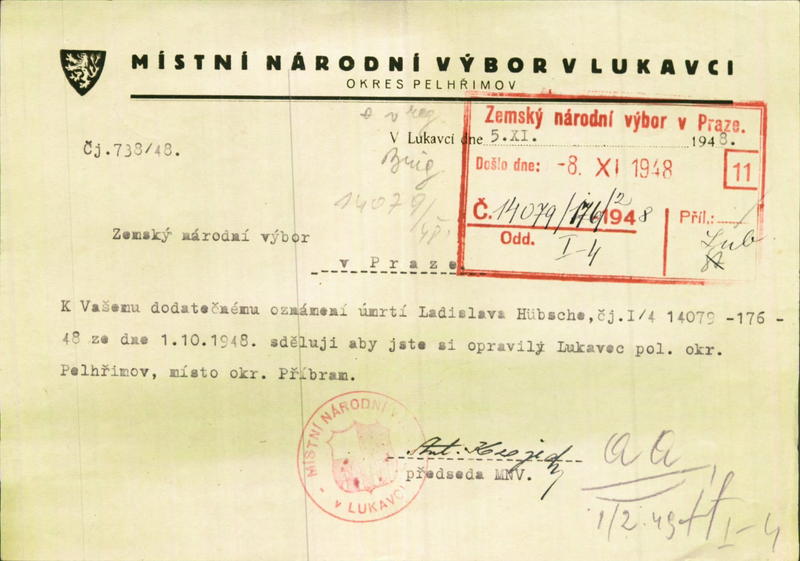 MÍSTNÍ NÁRODNÍ VÝBOR V LUKAVCI
OKRES PELHŘIMOV
V Lukavci dne 5.XI. 1948.
Čj.738/48.
Zemský národní výbor v Praze.
Došlo dne: -8. XI 1948
11
Č. 14079/176/2 1948 Příl.:
Odd. I-4
14079/
Zemský národní výbor
v Praze
K Vašemu dodatečnému oznámení úmrtí Ladislava Hübsche,čj.I/4 14079 -176 -
48 ze dne 1.10.1948. sděluji aby jste si opravily Lukavec pol. okr.
Pelhřimov, místo okr. Příbram.
MÍSTNÍ NÁRODNÍ V
v LUKAVCI
Ant.
předseda MNV.
a a
1/2.49
I-4